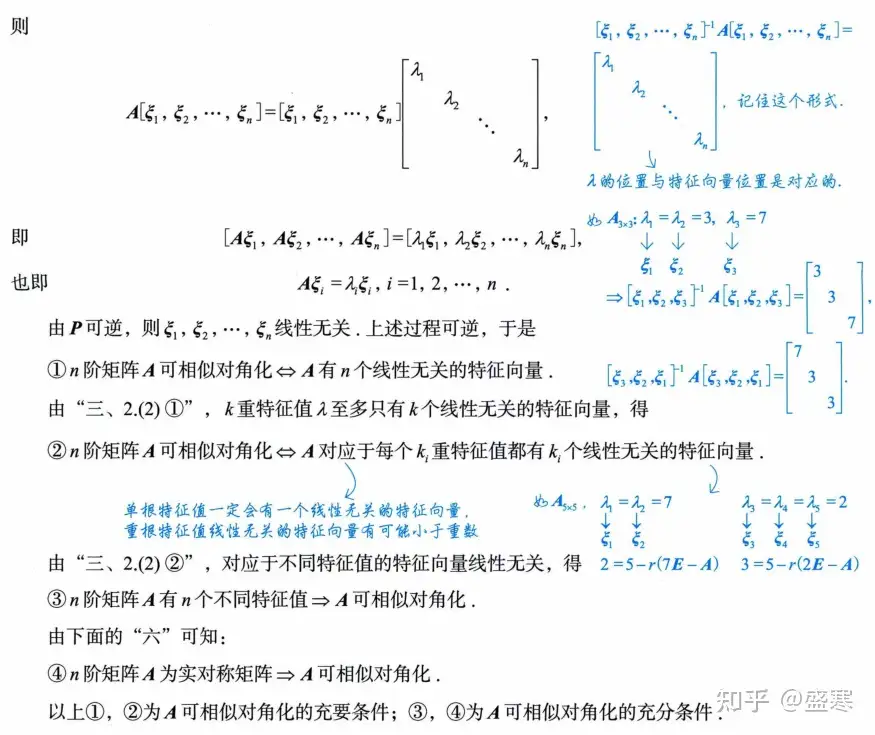 则
A[ξ₁, ξ₂, ⋯, ξₙ]=[ξ₁, ξ₂, ⋯, ξₙ][λ₁ λ₂ ⋱ λₙ],
[ξ₁, ξ₂, ⋯, ξₙ]⁻¹A[ξ₁, ξ₂, ⋯, ξₙ]=
[λ₁ λ₂ ⋱ λₙ], 记住这个形式.
λ的位置与特征向量位置是对应的.
即 [Aξ₁, Aξ₂, ⋯, Aξₙ]=[λ₁ξ₁, λ₂ξ₂, ⋯, λₙξₙ],
也即 Aξᵢ=λᵢξᵢ, i=1, 2, ⋯, n.
如 A₃ₓ₃: λ₁=λ₂=3, λ₃=7
↓ ↓ ↓
ξ₁ ξ₂ ξ₃
⇒[ξ₁,ξ₂,ξ₃]⁻¹A[ξ₁,ξ₂,ξ₃]=[3 3 7],
[ξ₃,ξ₂,ξ₁]⁻¹A[ξ₃,ξ₂,ξ₁]=[7 3 3].
由P可逆，则ξ₁, ξ₂, ⋯, ξₙ线性无关.上述过程可逆，于是
①n阶矩阵A可相似对角化⇔A有n个线性无关的特征向量.
由“三、2.(2)①”，k重特征值λ至多只有k个线性无关的特征向量，得
②n阶矩阵A可相似对角化⇔A对应于每个kᵢ重特征值都有kᵢ个线性无关的特征向量.
单根特征值一定会有一个线性无关的特征向量,
重根特征值线性无关的特征向量有可能小于重数
如 A₅ₓ₅, λ₁=λ₂=7 λ₃=λ₄=λ₅=2
↓ ↓ ↓ ↓ ↓
ξ₁ ξ₂ ξ₃ ξ₄ ξ₅
2=5-r(7E-A) 3=5-r(2E-A)
由“三、2.(2)②”，对应于不同特征值的特征向量线性无关，得
③n阶矩阵A有n个不同特征值⇒A可相似对角化.
由下面的“六”可知：
④n阶矩阵A为实对称矩阵⇒A可相似对角化.
以上①，②为A可相似对角化的充要条件；③，④为A可相似对角化的充分条件.
知乎 @盛寒